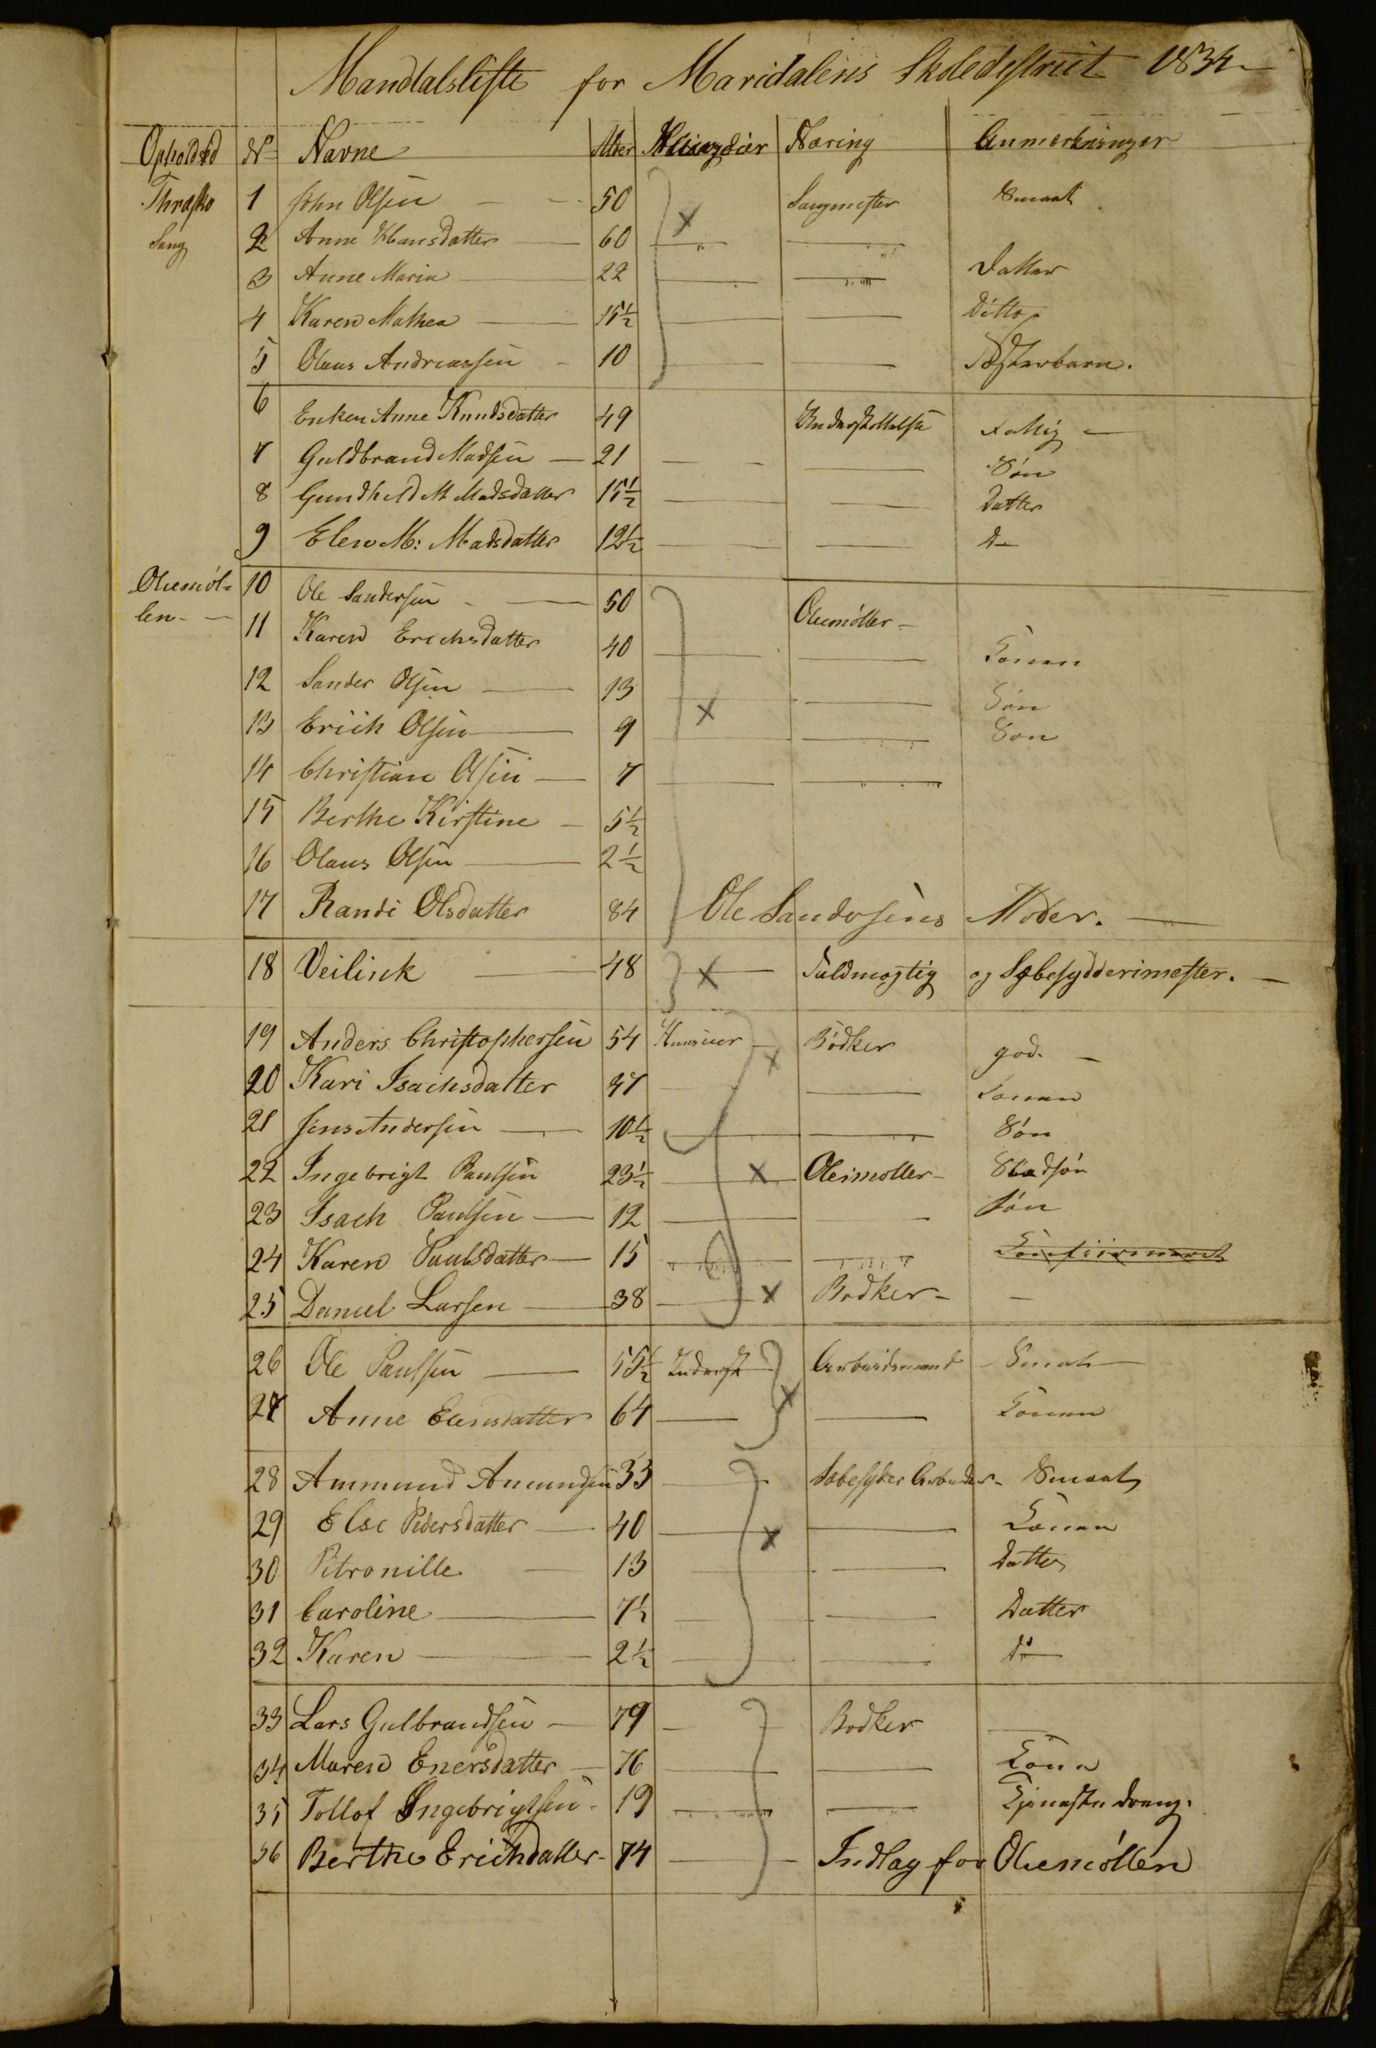 Mandtalsliste for Maridalens Skoledistrict 1834
Opholdsted No Navne Alder Næring Anmerkninger
Thræsko 1 John Olsen 50 Saugmester Smaat
Saug 2 Anne Hansdatter 60
3 Anne Maria 22 Datter
4 Karen Mathea 15½ Ditto
5 Olaus Andreassen 10 Pløsterbarn.
6 Enken Anne Knudsdatter 49 Understøttelse Fattig
7 Guldbrand Madsen 21 Søn
8 Gundhild M Madsdatter 15½ Datter
9 Elen M: Madsdatter 12½ D
Oliemøl- 10 Ole Sandersen 50 Oliemøller
len 11 Karen Erichsdatter 40 Konen
12 Sander Olsen 13 Søn
13 Erich Olsen 9 Søn
14 Christian Olsen 7
15 Berthe Kirstine 5½
16 Olaus Olsen 2½
17 Randi Olsdatter 84 Ole Sandersens Moder.
18 Veilink 48 Fuldmægtig og Sæbesydderimester.
19 Anders Christophersen 54 Huuseier Bødker god.
20 Kari Isachsdatter 37 Konen
21 Jens Andersen 10½ Søn
22 Ingebrigt Paulsen 23½ Oleimøller Stedsøn
23 Isach Paulsen 12 Søn
24 Karen Paulsdatter 15
25 Daniel Larsen 38 Bødker
26 Ole Paulsen 55½ Inderst Arbeidsmand Smat
27 Anne Eensdatter 64 Konen
28 Ammund Amundsen 33 Sæbesyder Arbeider Smaat
29 Else Pedersdatter 40 Konen
30 Petronille 13 Datter
31 Caroline 7½ Datter
32 Karen 2½ Do
33 Lars Gulbrandsen 79 Bødker
34 Maren Enersdatter 76 Kone
35 Tollof Ingebrigtsen 19 Tjenestedreng.
36 Berthe Erichdatter 74 Indlag for Oliemøllen